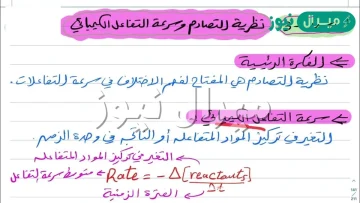 ميدان نيوز
نظرية التصادم وسرعة التفاعل الكيميائي
الفكرة الرئيسية
نظرية التصادم هي المفتاح لفهم الاختلاف في سرعة التفاعلات.
ميدان نيوز
سرعة التفاعل الكيميائي:
التغير في تركيز المواد المتفاعلة أو الناتجة في وحدة الزمن
التغير في تركيز المواد المتفاعلة
متوسط سرعة التفاعل Rate = -Δ[reactants] / Δt
الفترة الزمنية